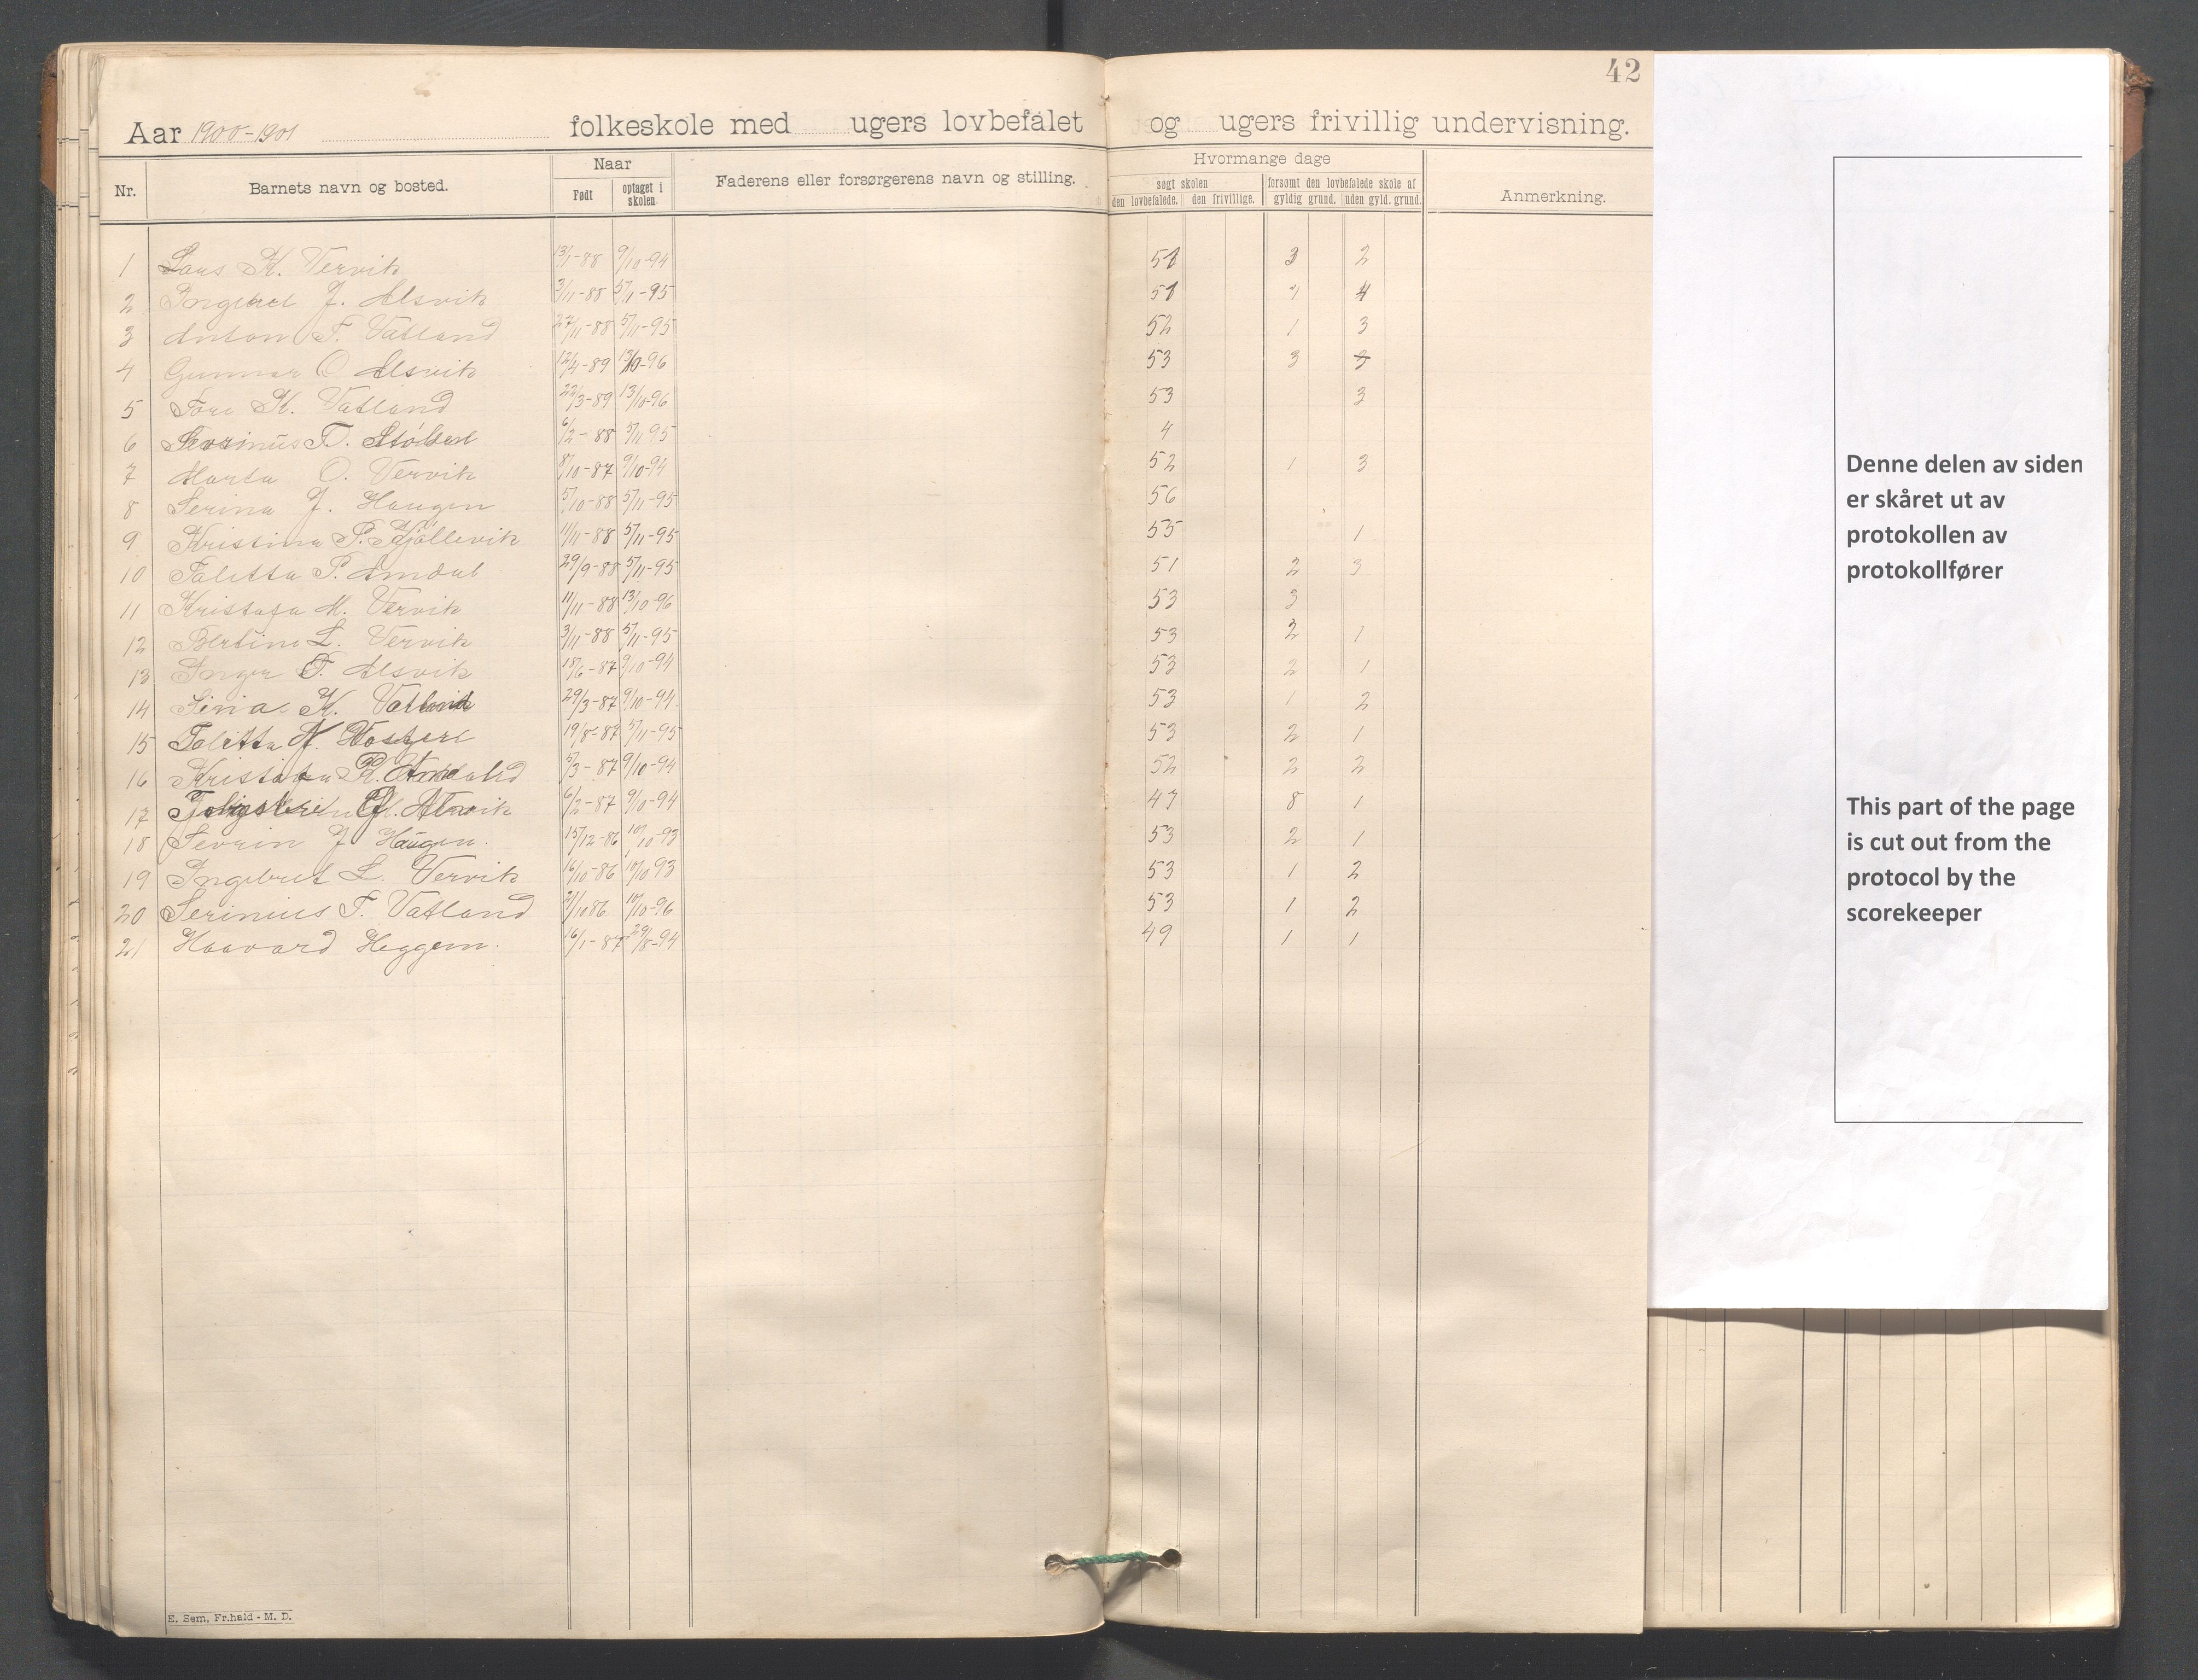 42
Aar 1900-1901 folkeskole med ugers lovbefalet og ugers frivillig undervisning.
Nr. Barnets navn og bosted. Naar Født optaget i skolen. Faderens eller forsørgerens navn og stilling. Hvormange dage søgt skolen den lovbefalede. den frivillige. forsømt den lovbefalede skole af gyldig grund. uden gyld. grund. Anmerkning.
1 Lars K. Vervik 13/1-88 9/10-94 51 3 2
2 Ingebret J. Alsvik 3/11-88 5/11-95 51 4
3 Anton T. Vatland 27/11-88 5/11-95 52 1 3
4 Gunnar O. Alsvik 12/4-89 13/10-96 53 3
5 Tore K. Vatland 22/3-89 13/10-96 53 3
6 Serinius T. 6/2-88 5/11 95 4
7 Marta O. Vervik 8/10-87 9/10-94 52 1 3
8 Serina J. Haugen 5/10-88 5/11-95 56
9 Kristina P. Kjøllevik 11/11-88 5/11-95 55 1
10 Talitta P. Amdal 29/9-88 5/11-95 51 2 3
11 Kristofa M. Vervik 11/11-88 13/10-96 53 3
12 Bertine L. Vervik 3/11-88 5/11-95 53 2 1
13 Inger T. Alsvik 18/6-87 9/10-94 53 2 1
14 Sina K. Vatland 29/3-87 9/10-94 53 1 2
15 Talitta 19/8-87 5/11-95 53 2 1
16 Kristofa 5/3-87 9/10-94 52 2 2
17 Alsvik 6/2-87 9/10-94 47 8 1
18 Sevrin J Haugen. 15/12-86 10/10-93 53 2 1
19 Ingebret L. Vervik 16/10-86 10/10 93 53 1 2
20 Serinius T. Vatland 2/10 86 10/10-96 53 1 2
21 Haavard Heggem. 16/1-87 29/8-94 49 1 1
E. Sem, Fr.hald - M. D.
Denne delen av siden
er skåret ut av
protokollen av
protokollfører
This part of the page
is cut out from the
protocol by the
scorekeeper